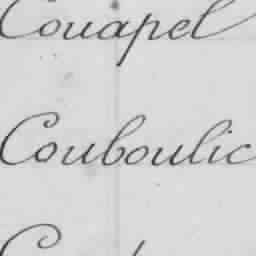 Couapel
Couboulic